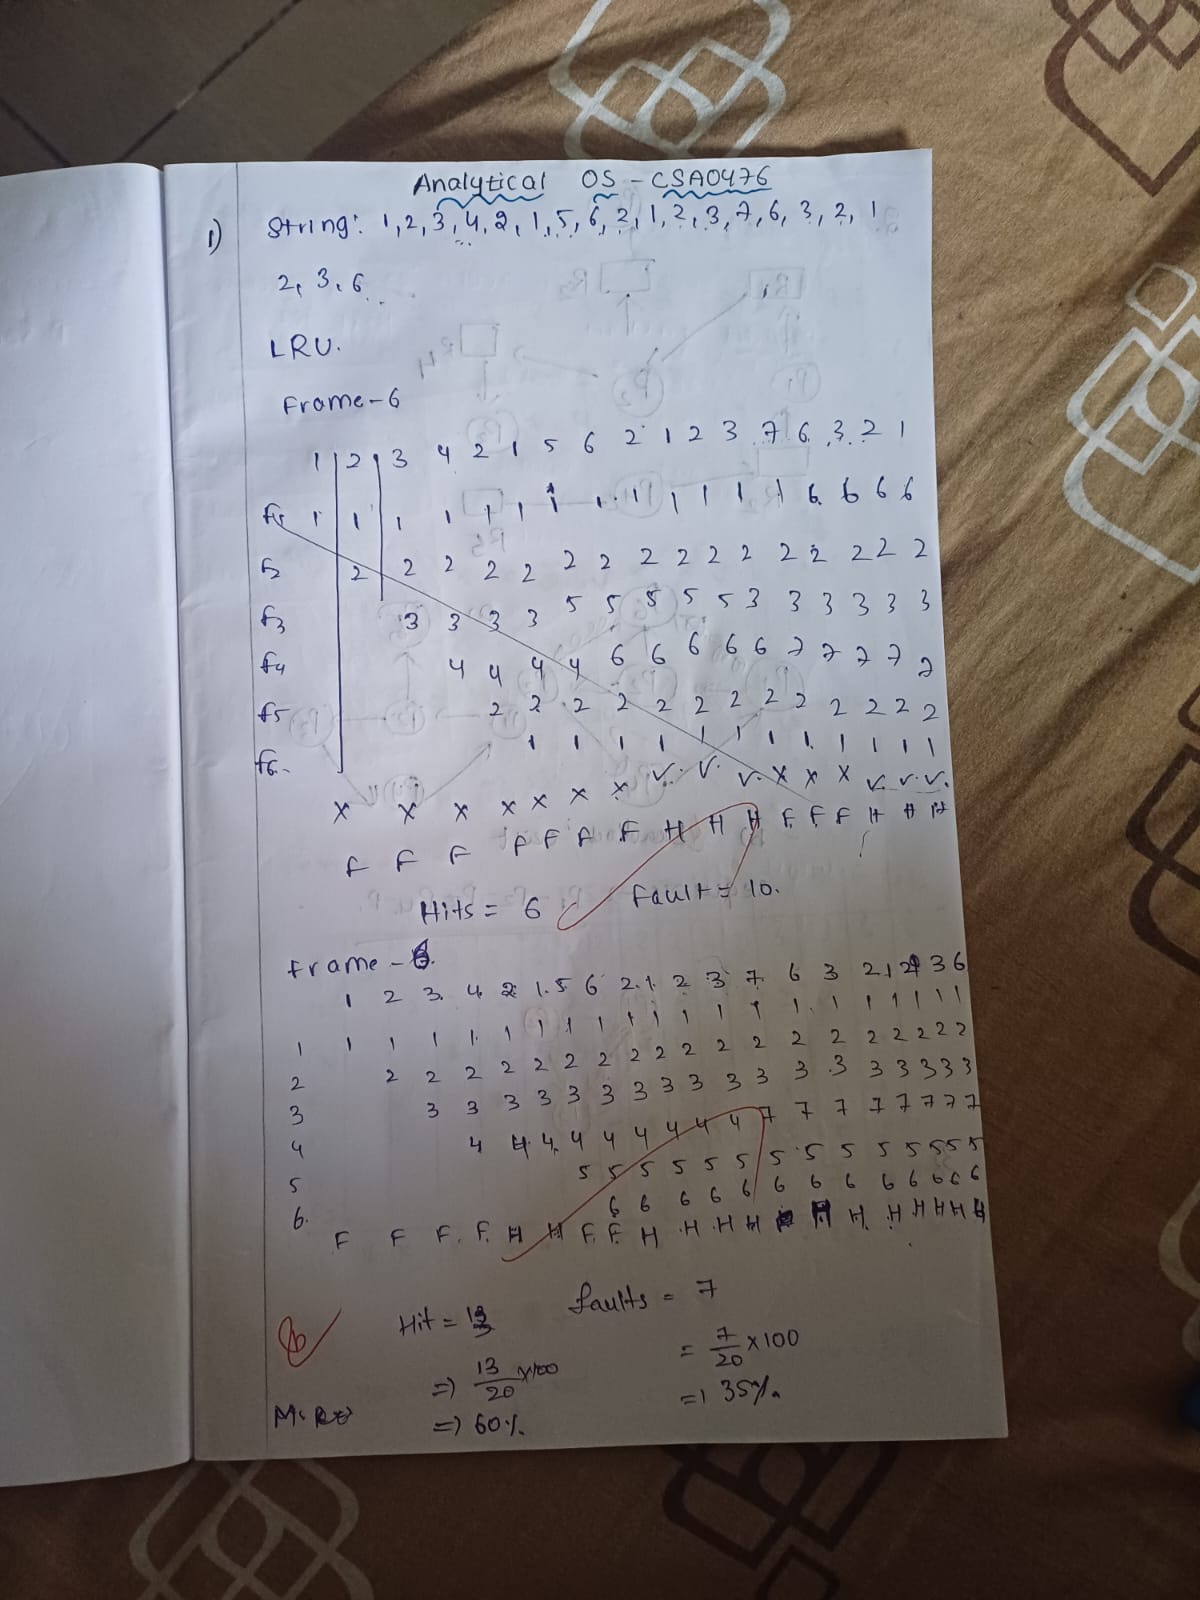 Analytical OS - CSA0476
1) String: 1,2,3,4,2,1,5,6,2,1,2,3,7,6,3,2,1
2,3,6.
LRU.
Frame-6
1 2 3 4 2 1 5 6 2 1 2 3 7 6 3 2 1
f1 1 1 1 1 1 1 1 1 1 1 1 1 1 6 6 6 6
f2 2 2 2 2 2 2 2 2 2 2 2 2 2 2 2 2
f3 3 3 3 3 5 5 5 5 5 3 3 3 3 3 3
f4 4 4 4 4 6 6 6 6 6 7 7 7 7 7
f5 2 2 2 2 2 2 2 2 2 2 2 2 2
f6. 1 1 1 1 1 1 1 1 1 1 1 1
x x x x x x x v. v. v. x x x v. v. v.
F F F F F F F H H H F F F H H H
Hits = 6 Fault = 10.
Frame - 6.
1 2 3. 4 2 1. 5 6 2. 1. 2 3 7 6 3 2 1 2 3 6
1 1 1 1 1 1 1 1 1 1 1 1 1 1 1 1 1 1 1 1
2 2 2 2 2 2 2 2 2 2 2 2 2 2 2 2 2 2 2 2
3 3 3 3 3 3 3 3 3 3 3 3 3 3 3 3 3 3 3
4 4 4 4 4 4 4 4 4 4 7 7 7 7 7 7 7 7
5 5 5 5 5 5 5 5 5 5 5 5 5 5 5
6. 6 6 6 6 6 6 6 6 6 6 6 6 6
F F F. F. H H F. F. H H H H H H H H H H
Hit = 13 faults = 7
=) 13/20 x100 = 7/20 x 100
=) 60% =) 35%.